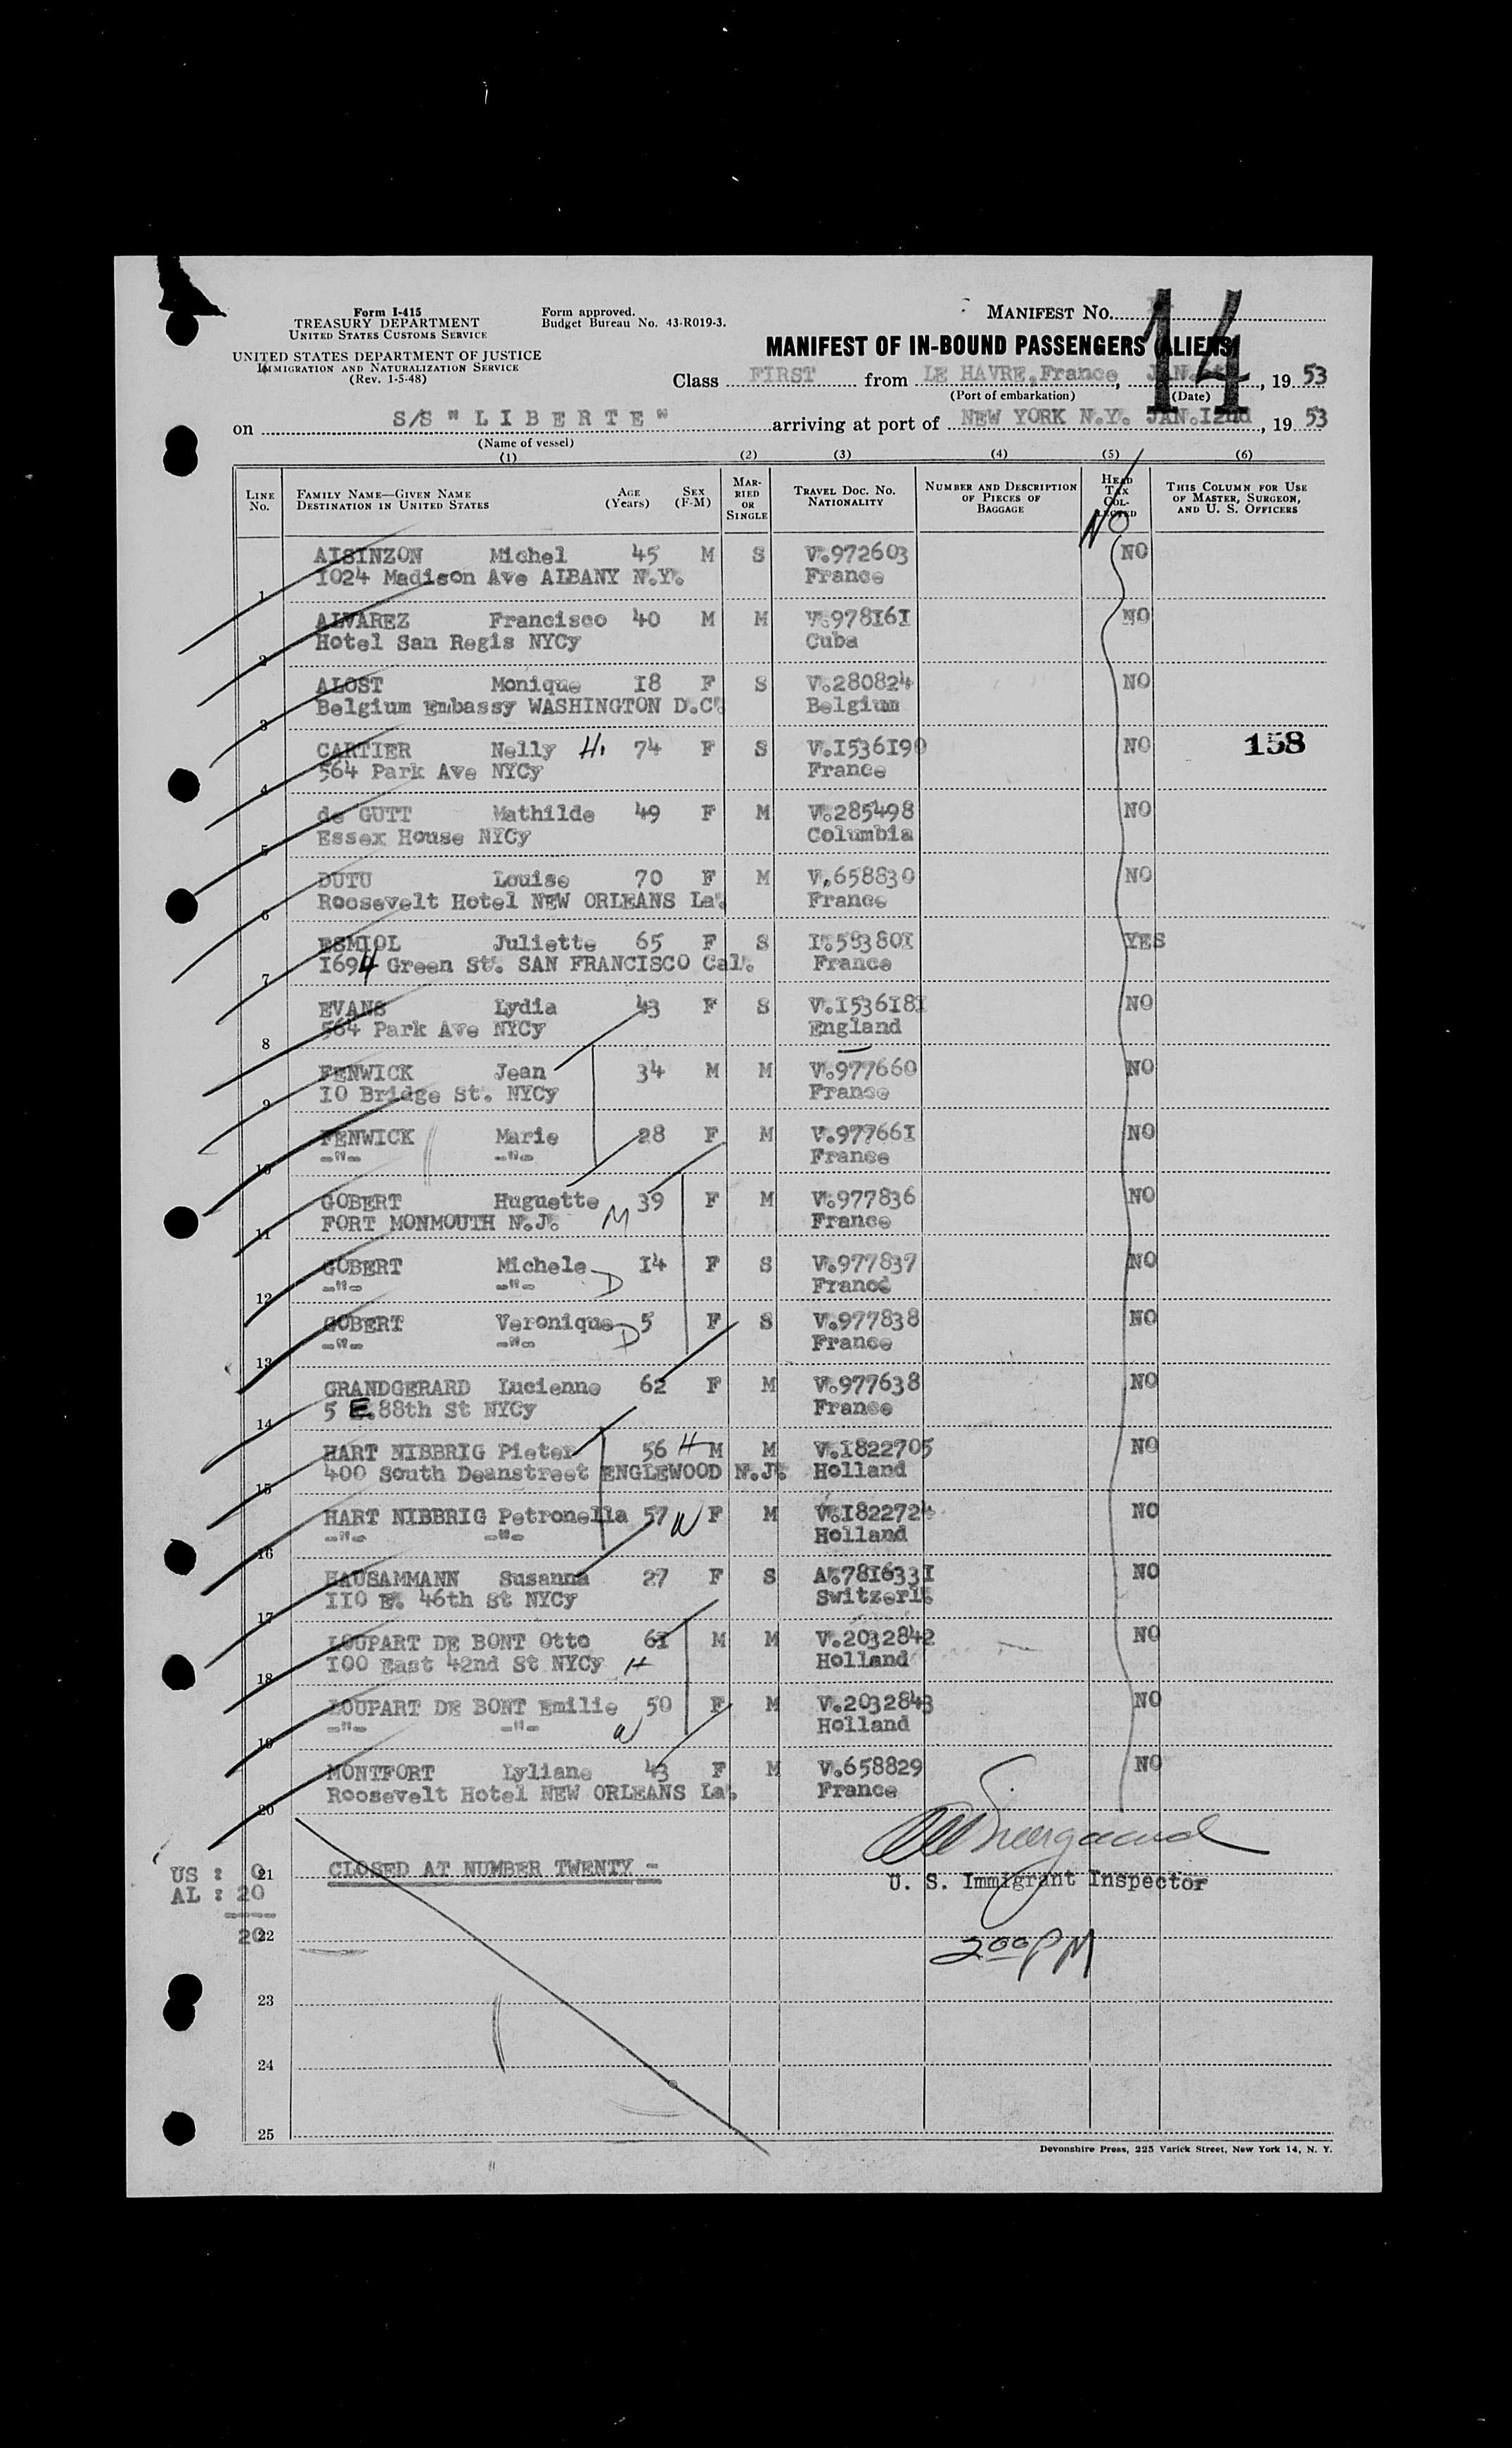 Form I-415
TREASURY DEPARTMENT
UNITED STATES CUSTOMS SERVICE
UNITED STATES DEPARTMENT OF JUSTICE
IMMIGRATION AND NATURALIZATION SERVICE
(Rev. 1-5-48)
Form approved.
Budget Bureau No. 43-R019-3.
MANIFEST NO.
14
MANIFEST OF IN-BOUND PASSENGERS (ALIENS)
Class FIRST from LE HAVRE, France, JAN. , 19 53
(Port of embarkation) (Date)
on S/S " L I B E R T E " arriving at port of NEW YORK N.Y. JAN.I2nd, 19 53
(Name of vessel)
(1) (2) (3) (4) (5) (6)
LINE No. FAMILY NAME—GIVEN NAME DESTINATION IN UNITED STATES AGE (Years) SEX (F-M) MARRIED OR SINGLE TRAVEL DOC. NO. NATIONALITY NUMBER AND DESCRIPTION OF PIECES OF BAGGAGE HEAD TAX COLLECTED THIS COLUMN FOR USE OF MASTER, SURGEON, AND U. S. OFFICERS
NO
AISINZON Michel 45 M S V.972603 NO
1 I024 Madison Ave ALBANY N.Y. France
ALVAREZ Francisco 40 M M V.978I6I NO
2 Hotel San Regis NYCy Cuba
ALOST Monique I8 F S V.280824 NO
3 Belgium Embassy WASHINGTON D.C. Belgium
CARTIER Nelly H. 74 F S V.I536I90 NO 158
4 564 Park Ave NYCy France
de GUTT Mathilde 49 F M V.285498 NO
5 Essex House NYCy Columbia
DUTU Louise 70 F M V.658830 NO
6 Roosevelt Hotel NEW ORLEANS La. France
ESMIOL Juliette 65 F S I.58380I YES
7 I694 Green St. SAN FRANCISCO Cal. France
EVANS Lydia 43 F S V.I536I8I NO
8 564 Park Ave NYCy England
FENWICK Jean 34 M M V.977660 NO
9 I0 Bridge St. NYCy France
FENWICK Marie 28 F M V.97766I NO
10 -"- -"- France
GOBERT Huguette M 39 F M V.977836 NO
11 FORT MONMOUTH N.J. France
GOBERT Michele D I4 F S V.977837 NO
12 -"- -"- France
GOBERT Veronique D 5 F S V.977838 NO
13 -"- -"- France
GRANDGERARD Lucienne 62 F M V.977638 NO
14 5 E.88th St NYCy France
HART NIBBRIG Pieter 56 H M M V.I822705 NO
15 400 South Deanstreet ENGLEWOOD N.J. Holland
HART NIBBRIG Petronella 57 W F M V.I822724 NO
16 -"- -"- Holland
HAUSAMMANN Susanna 27 F S A.78I633I NO
17 II0 E. 46th St NYCy Switzerl.
LOUPART DE BONT Otto 6I M M V.2032842 NO
18 I00 East 42nd St NYCy H Holland
LOUPART DE BONT Emilie 50 F M V.2032843 NO
19 -"- -"- W Holland
MONTFORT Lyliane 43 F M V.658829 NO
20 Roosevelt Hotel NEW ORLEANS La. France
US : 0 21 CLOSED AT NUMBER TWENTY -
AL : 20
U. S. Immigrant Inspector
20 22
2 00 PM
23
24
25
Devonshire Press, 225 Varick Street, New York 14, N. Y.